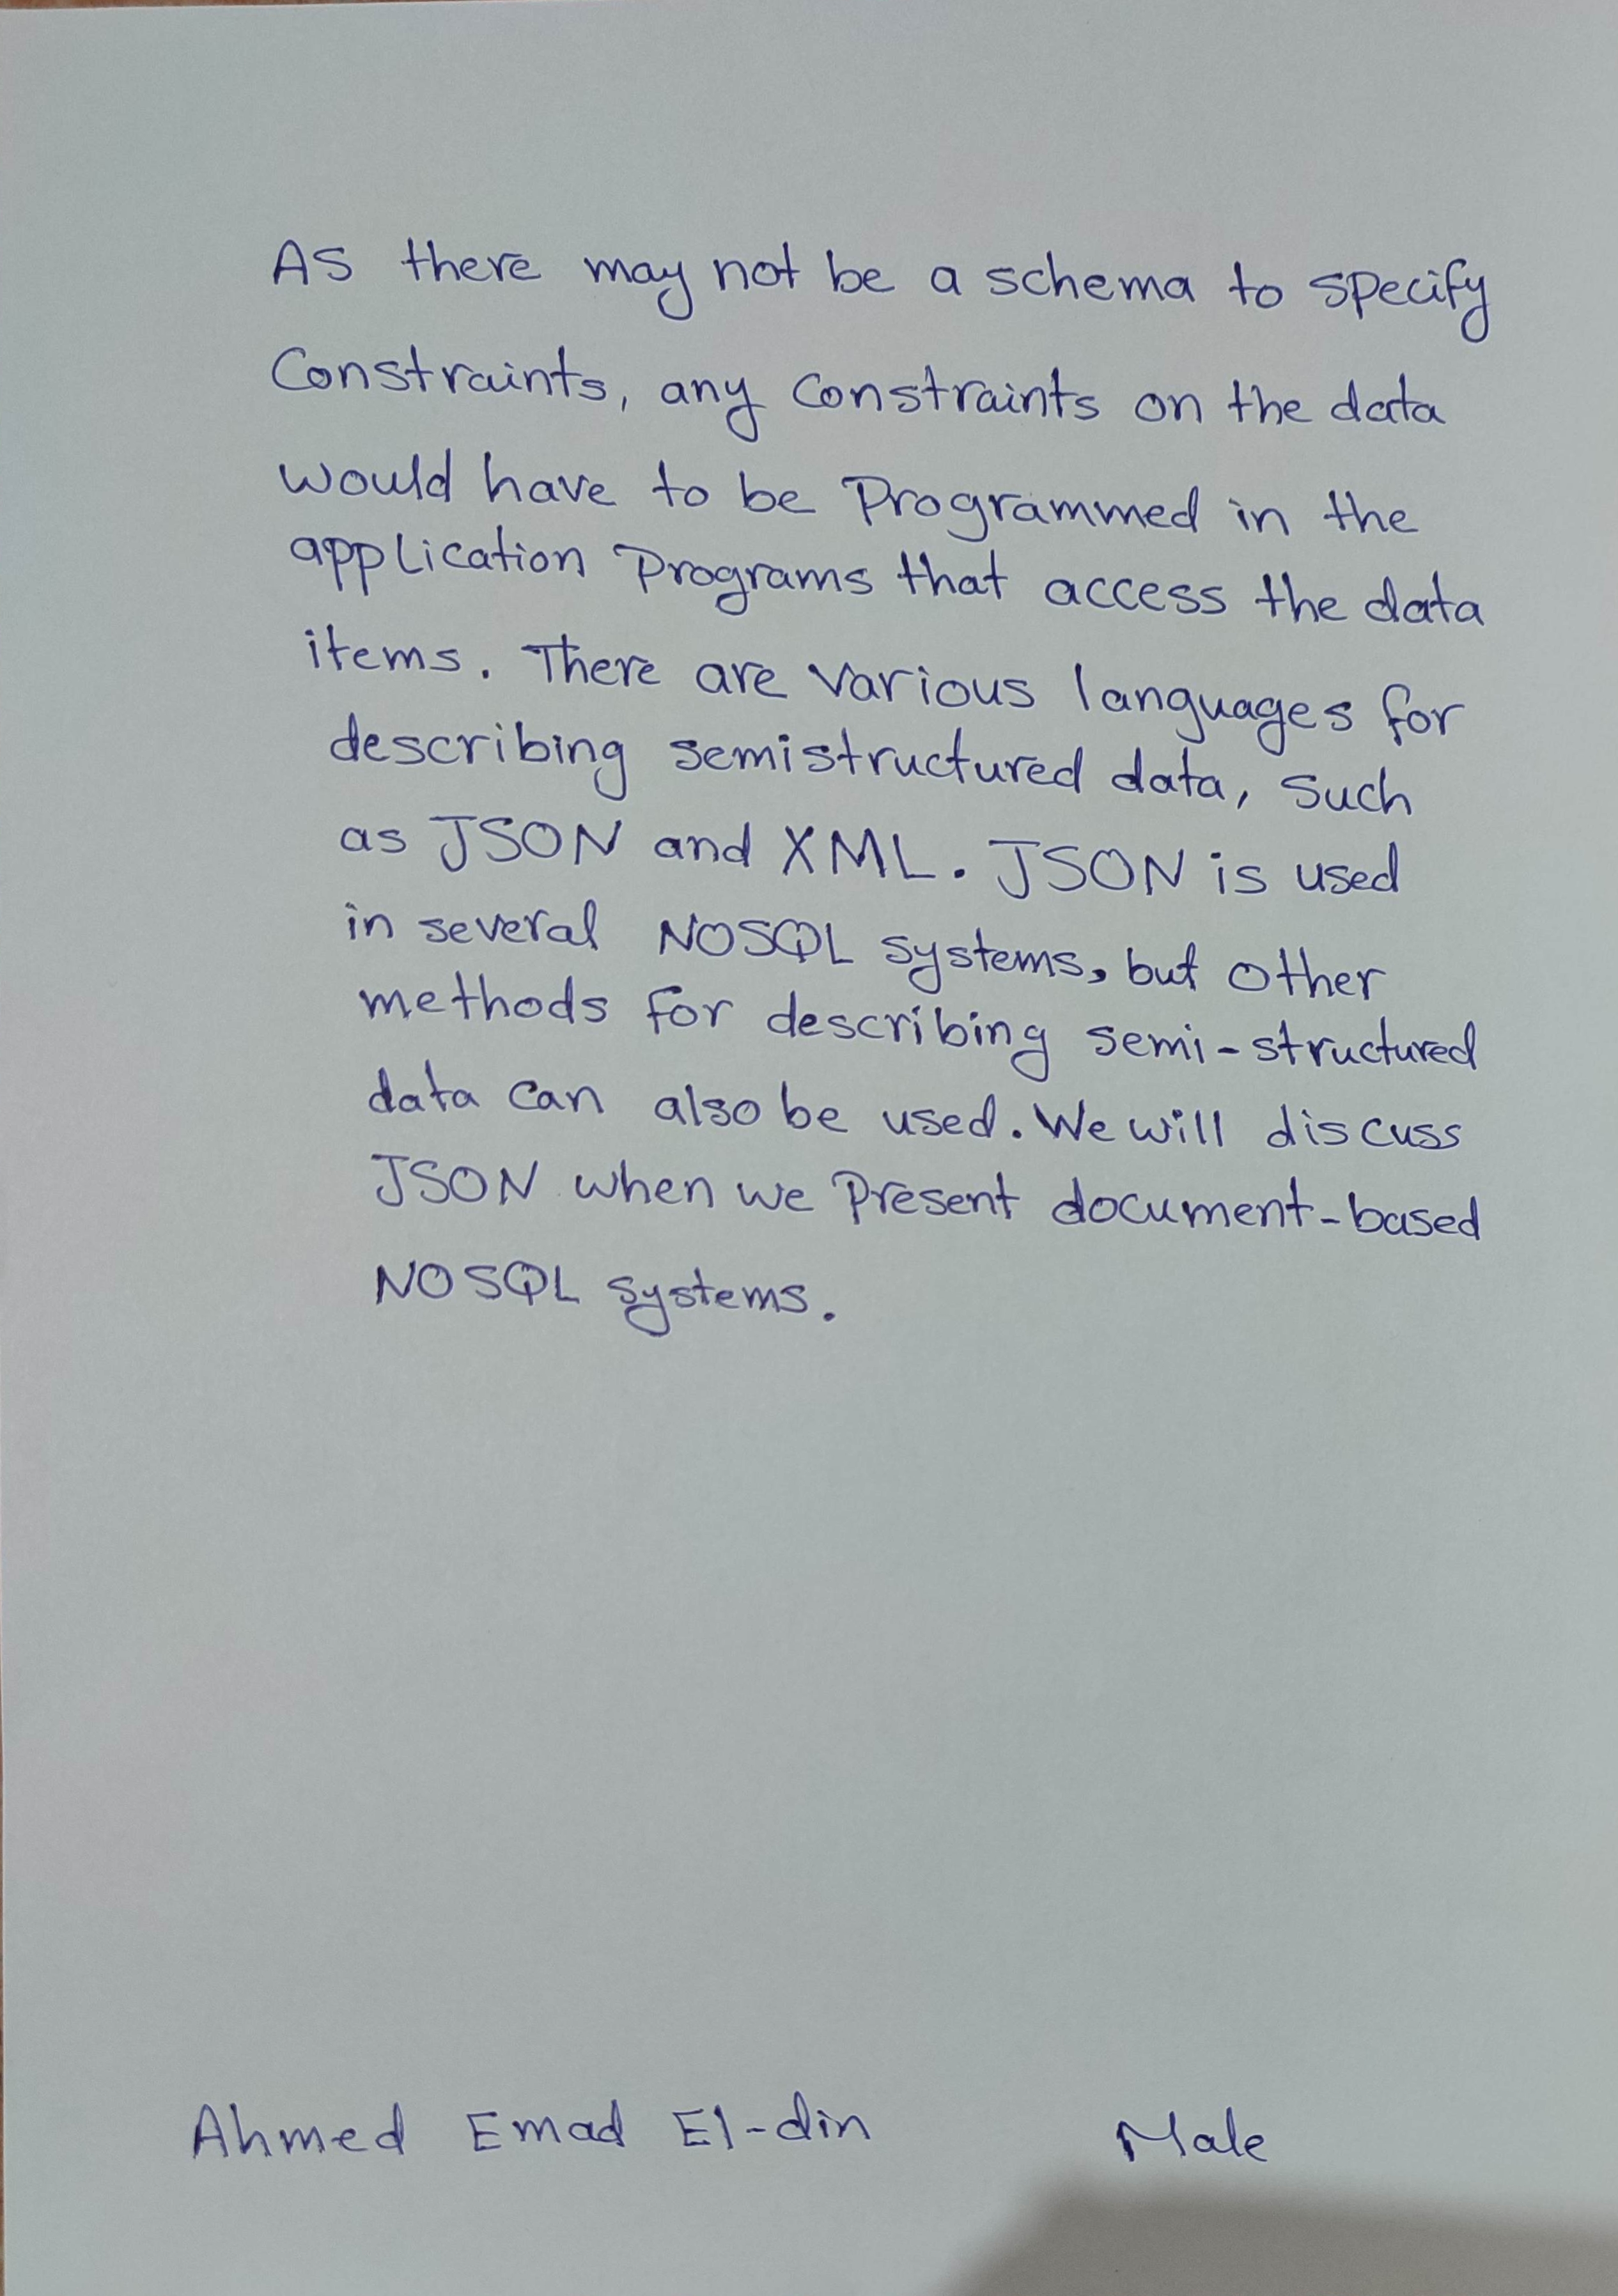 As there may not be a schema to specify
Constraints, any constraints on the data
would have to be Programmed in the
application Programs that access the data
items. There are various languages for
describing semistructured data, such
as JSON and XML. JSON is used
in several NOSQL systems, but other
methods for describing semi-structured
data can also be used. We will discuss
JSON when we Present document-based
NOSQL systems.
Ahmed Emad El-din Male